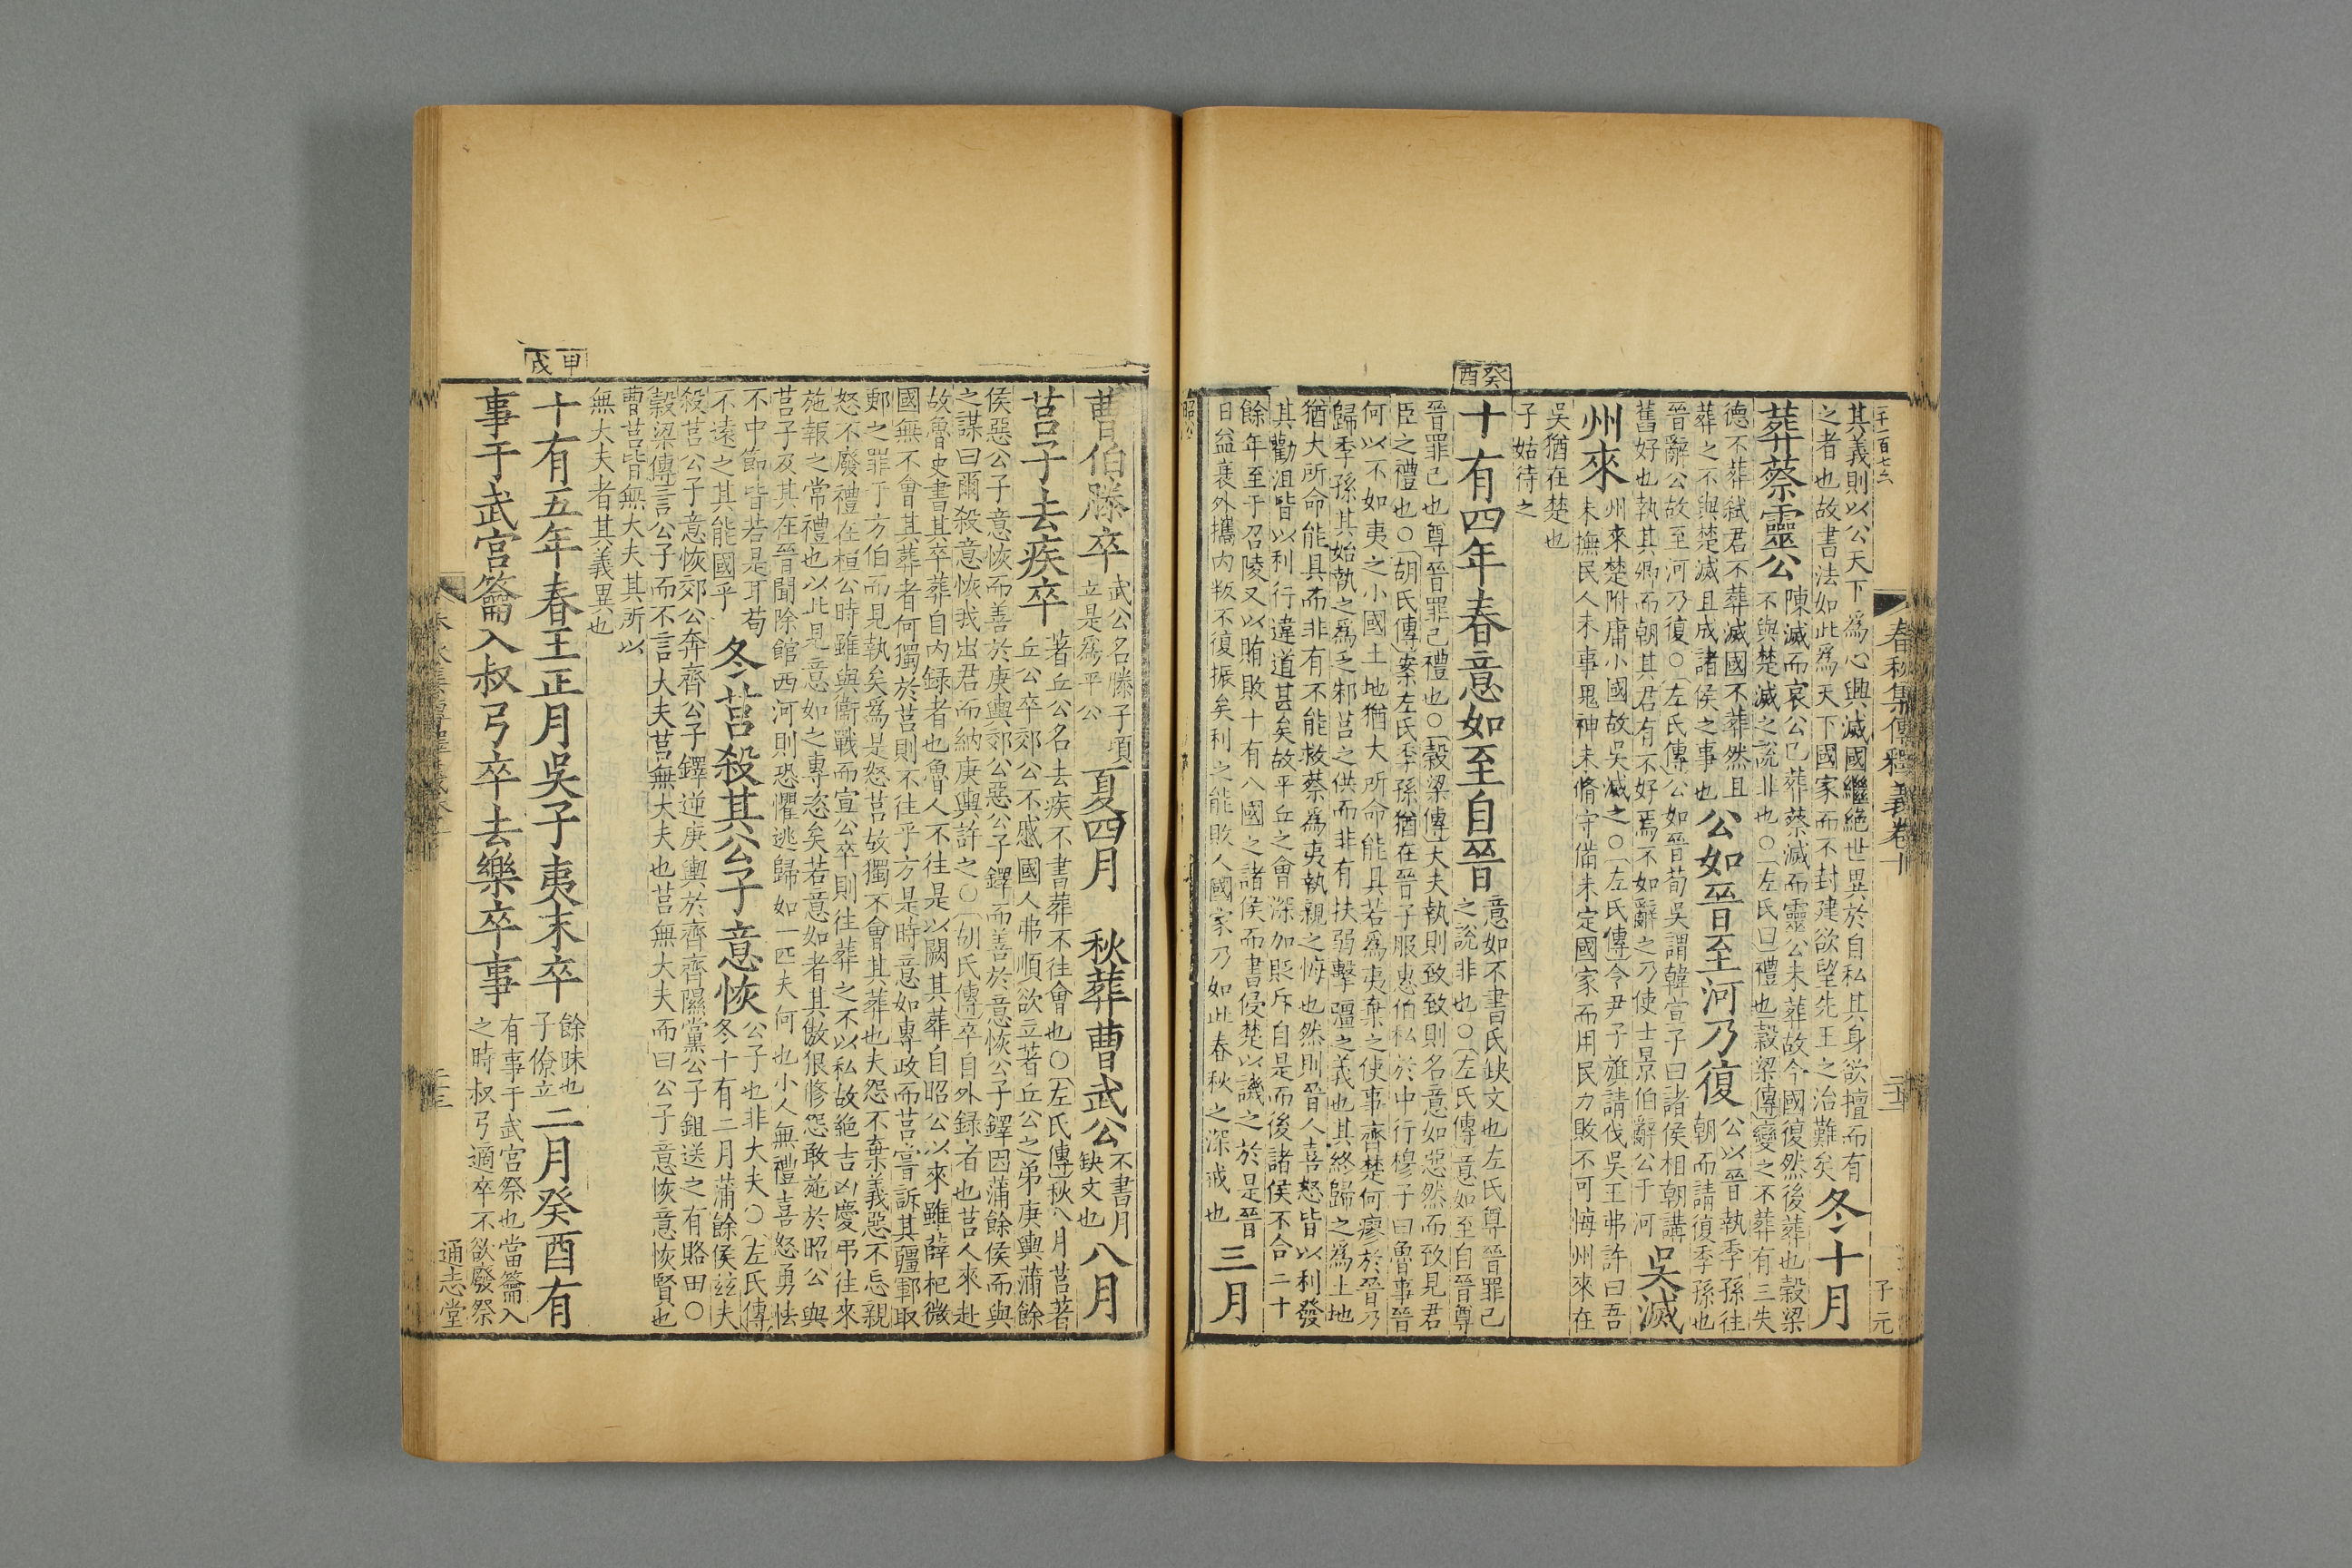 春秋集傳釋義卷十
二十二
子元
其義則以公天下爲心興滅國繼絶世異於自私其身欲擅而有
之者也故書法如此爲天下國家而不封建欲望先王之治難矣
冬十月
葬蔡靈公
陳滅而哀公已葬蔡滅而靈公未葬故今國復然後葬也穀梁
不與楚滅之說非也○左氏曰禮也穀梁傳變之不葬有三失
德不葬弑君不葬滅國不葬然且
葬之不與楚滅且成諸侯之事也
公如晉至河乃復
公以晉執季孫往
朝而請復季孫也
晉辭公故至河乃復○左氏傳公如晉荀吳謂韓宣子曰諸侯相朝講
舊好也執其卿而朝其君有不好焉不如辭之乃使士景伯辭公于河
吳滅
州來
州來楚附庸小國故吳滅之○左氏傳令尹子旗請伐吳王弗許曰吾
未撫民人未事鬼神未脩守備未定國家而用民力敗不可悔州來在
吳猶在楚也
子姑待之
癸酉
十有四年春意如至自晉
意如不書氏缺文也左氏尊晉罪己
之說非也○左氏傳意如至自晉尊
晉罪己也尊晉罪己禮也○穀梁傳大夫執則致致則名意如惡然而致見君
臣之禮也○胡氏傳案左氏季孫猶在晉子服惠伯私於中行穆子曰魯事晉
何以不如夷之小國土地猶大所命能具若爲夷棄之使事齊楚何瘳於晉乃
歸季孫其始執之爲乏邾莒之供而非有扶弱擊彊之義也其終歸之爲土地
猶大所命能具而非有不能救蔡爲夷執親之悔也然則晉人喜怒皆以利發
其勸沮皆以利行違道甚矣故平丘之會深加貶斥自是而後諸侯不合二十
餘年至于召陵又以賄敗十有八國之諸侯而書侵楚以譏之於是晉
日益衰外攜内叛不復振矣利之能敗人國家乃如此春秋之深戒也
三月
昭公
曹伯滕卒
武公名滕子頃
立是爲平公
夏四月
秋葬曹武公
不書月
缺文也
八月
莒子去疾卒
著丘公名去疾不書葬不往會也○左氏傳秋八月莒著
丘公卒郊公不慼國人弗順欲立著丘公之弟庚輿蒲餘
侯惡公子意恢而善於庚輿郊公惡公子鐸而善於意恢公子鐸因蒲餘侯而與
之謀曰爾殺意恢我出君而納庚輿許之○胡氏傳卒自外録者也莒人來赴
故魯史書其卒葬自内録者也魯人不往是以闕其葬自昭公以來雖薛杞微
國無不會其葬者何獨於莒則不往乎方是時意如專政而莒嘗訴其疆鄆取
鄭之罪于方伯而見執矣爲是怒莒故獨不會其葬也夫怨不棄義惡不忘親
怒不廢禮在桓公時雖與衞戰而宣公卒則往葬之不以私故絶吉凶慶弔往來
施報之常禮也以此見意如之專恣矣若意如者其傲狠修怨敢施於昭公與
莒子及其在晉聞除館西河則恐懼逃歸如一匹夫何也小人無禮喜怒勇怯
不中節皆若是耳苟
不遠之其能國乎
冬莒殺其公子意恢
公子也非大夫○左氏傳
冬十有二月蒲餘侯兹夫
殺莒公子意恢郊公奔齊公子鐸逆庚輿於齊齊隰黨公子鉏送之有賂田○
穀梁傳言公子而不言大夫莒無大夫也莒無大夫而曰公子意恢意恢賢也
曹莒皆無大夫其所以
無大夫者其義異也
甲戌
十有五年春王正月吳子夷末卒
餘昧也
子僚立
二月癸酉有
事于武宮籥入叔弓卒去樂卒事
有事于武宮祭也當籥入
之時叔弓適卒不欲廢祭
二十三
通志堂